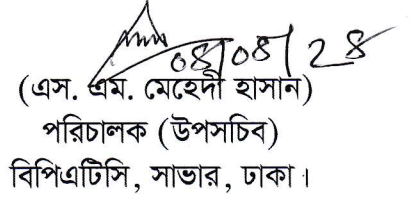 ০৪/০৪/২৪
(এস. এম. মেহেদী হাসান)
পরিচালক (উপসচিব)
বিপিএটিসি, সাভার, ঢাকা।